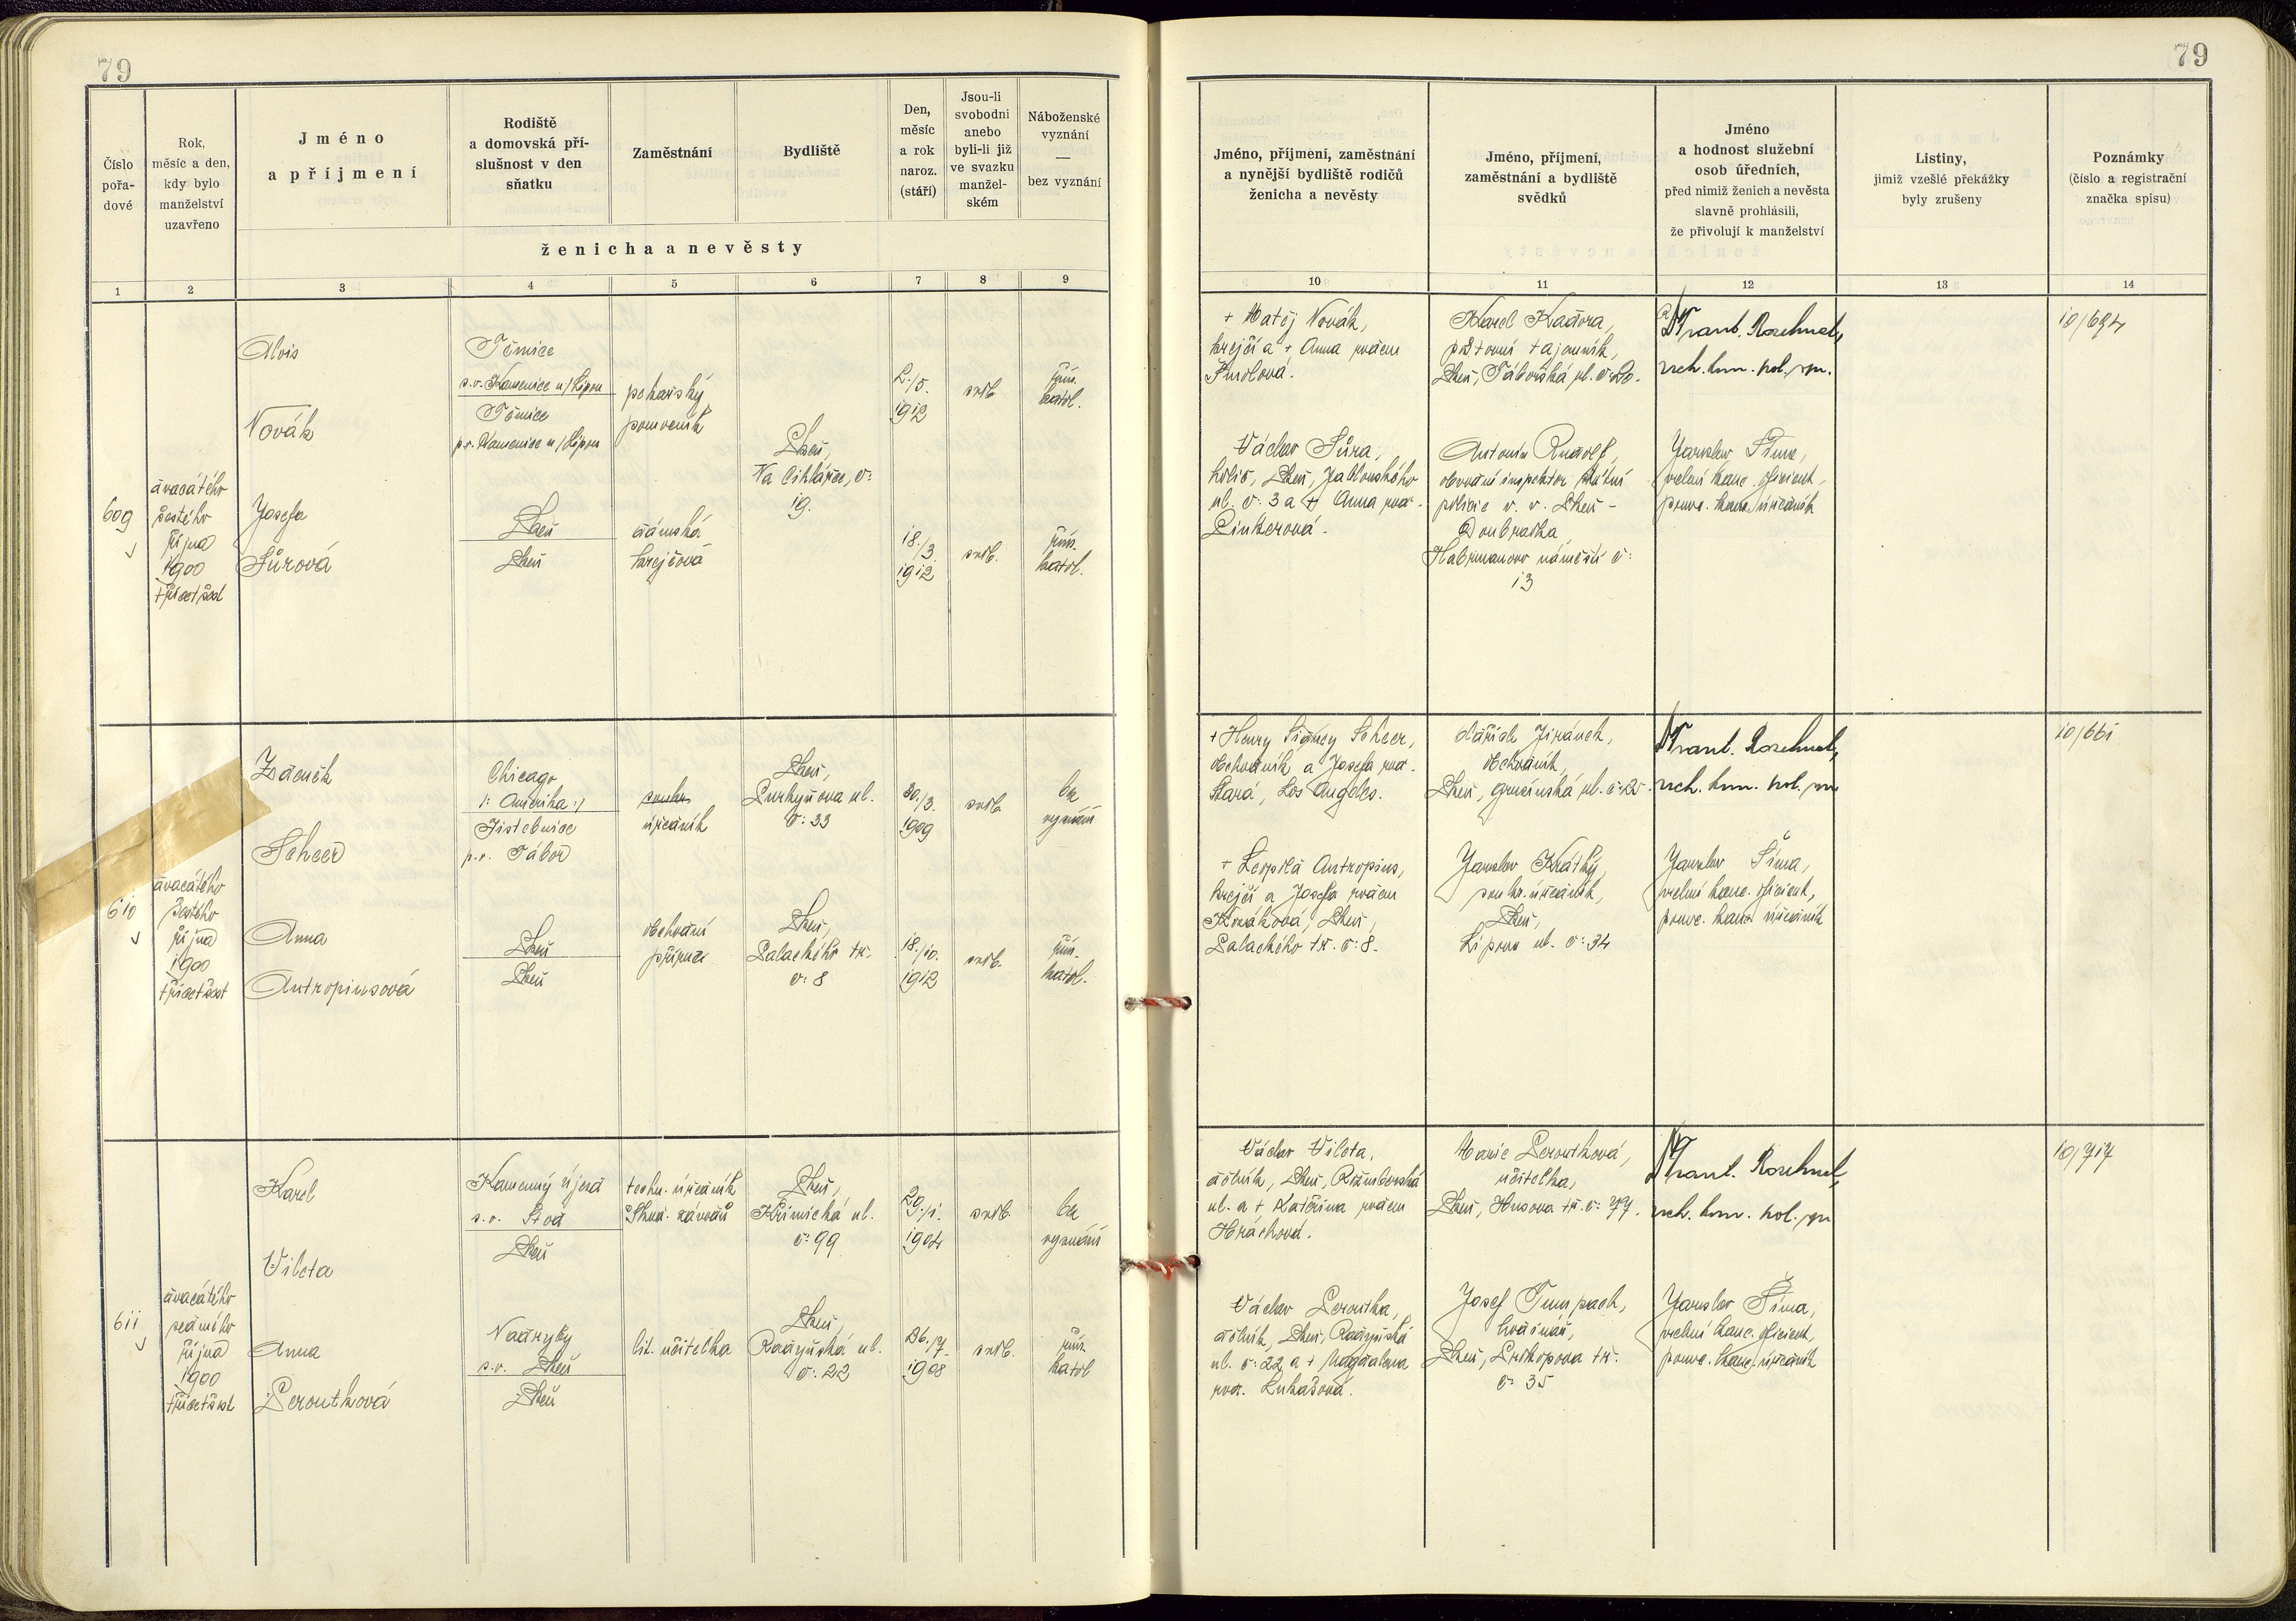 79
Číslo pořa-dové
Rok, měsíc a den, kdy bylo manželství uzavřeno
Jméno a příjmení
Rodiště a domovská pří-slušnost v den sňatku
Zaměstnání
Bydliště
Den, měsíc a rok naroz. (stáří)
Jsou-li svobodni anebo byli-li již ve svazku manžel-ském
Náboženské vyznání — bez vyznání
ženicha a nevěsty
1 2 3 4 5 6 7 8 9
609
dvacátého
šestého
října
1900
třicetšest
Alois
Novák
Těmice
s.o. Kamenice n/Lipou
Těmice
p.o. Kamenice n/Lipou
pekařský
pomocník
Plzeň,
Na Cihlářce, č:
19.
2./5.
1912
svob.
řím.
katol.
Josefa
Šůrová
Plzeň
Plzeň
dámská
krejčová
18./3
1912
svob.
řím.
katol.
610
dvacátého
šestého
října
1900
třicetšest
Zdeněk
Scheer
Chicago
/: Amerika :/
Jistebnice
p.o. Tábor
úředník
Plzeň,
Purkyňova ul.
č: 33
30./3.
1909
svob.
bez
vyznání
Anna
Antropiusová
Plzeň
Plzeň
obchodní
příručí
Plzeň,
Palackého tř.
č: 8
18./10.
1912
svob.
řím.
katol.
611
dvacátého
sedmého
října
1900
třicetšest
Karel
Vileta
Kamenný Újezd
s.o. Stod
Plzeň
techn. úředník
Škod. závodů
Plzeň,
Křimická ul.
č: 99
29./1.
1904
svob.
bez
vyznání
Anna
Peroutková
Nadryby
s.o. Plzeň
Plzeň
lit. učitelka
Plzeň,
Radyňská ul.
č: 22
26./7.
1908
svob.
řím.
katol
79
Jméno, příjmení, zaměstnání a nynější bydliště rodičů ženicha a nevěsty
Jméno, příjmení, zaměstnání a bydliště svědků
Jméno a hodnost služební osob úředních, před nimiž ženich a nevěsta slavně prohlásili, že přivolují k manželství
Listiny, jimiž vzešlé překážky byly zrušeny
Poznámky (číslo a registrační značka spisu)
10 11 12 13 14
+ Matěj Novák,
krejčí a + Anna rozen
Šmolova.
Karel Kadera,
poštovní tajemník,
Plzeň, Táborská ul. č: 20.
Frant. Rozehnal,
vrch. kom. pol. spr.
10/694
Václav Šůra,
holič, Plzeň, Jablonského
ul. č: 3 a + Anna roz.
Pinkerová.
Antonín Rudolf,
obvodní inspektor státní
policie v. v. Plzeň -
Doubravka
Habrmanovo náměstí č:
13
Jaroslav Šíma,
vrchní kanc. oficient,
pomoc. kanc. úředník
+ Henry Sidney Scheer,
obchodník a Josefa roz.
Stará, Los Angeles.
Oldřich Jiránek,
obchodník,
Plzeň, Gruzínská ul. č: 25.
Frant. Rozehnal,
vrch. kom. pol. spr
10/661
+ Leopold Antropius,
krejčí a Josefa rozen
Kovářková, Plzeň,
Palackého tř. č: 8.
Jaroslav Krátký,
soukr. úředník,
Plzeň,
Lipová ul. č: 34
Jaroslav Šíma,
vrchní kanc. oficient,
pomoc. kanc. úředník
Václav Vileta,
dělník, Plzeň, Rižmberská
ul. a + Kateřina rozen
Hráchová.
Marie Peroutková,
učitelka,
Plzeň, Husova tř. č: 77.
Frant. Rozehnal,
vrch. kom. pol. spr
10/717
Václav Peroutka,
dělník, Plzeň, Radyňská
ul. č: 22 a + Magdalena
roz. Lukášová.
Josef Tumpach,
hodinář,
Plzeň, Prokopova tř.
č: 35
Jaroslav Šíma,
vrchní kanc. oficient,
pomoc. kanc. úředník